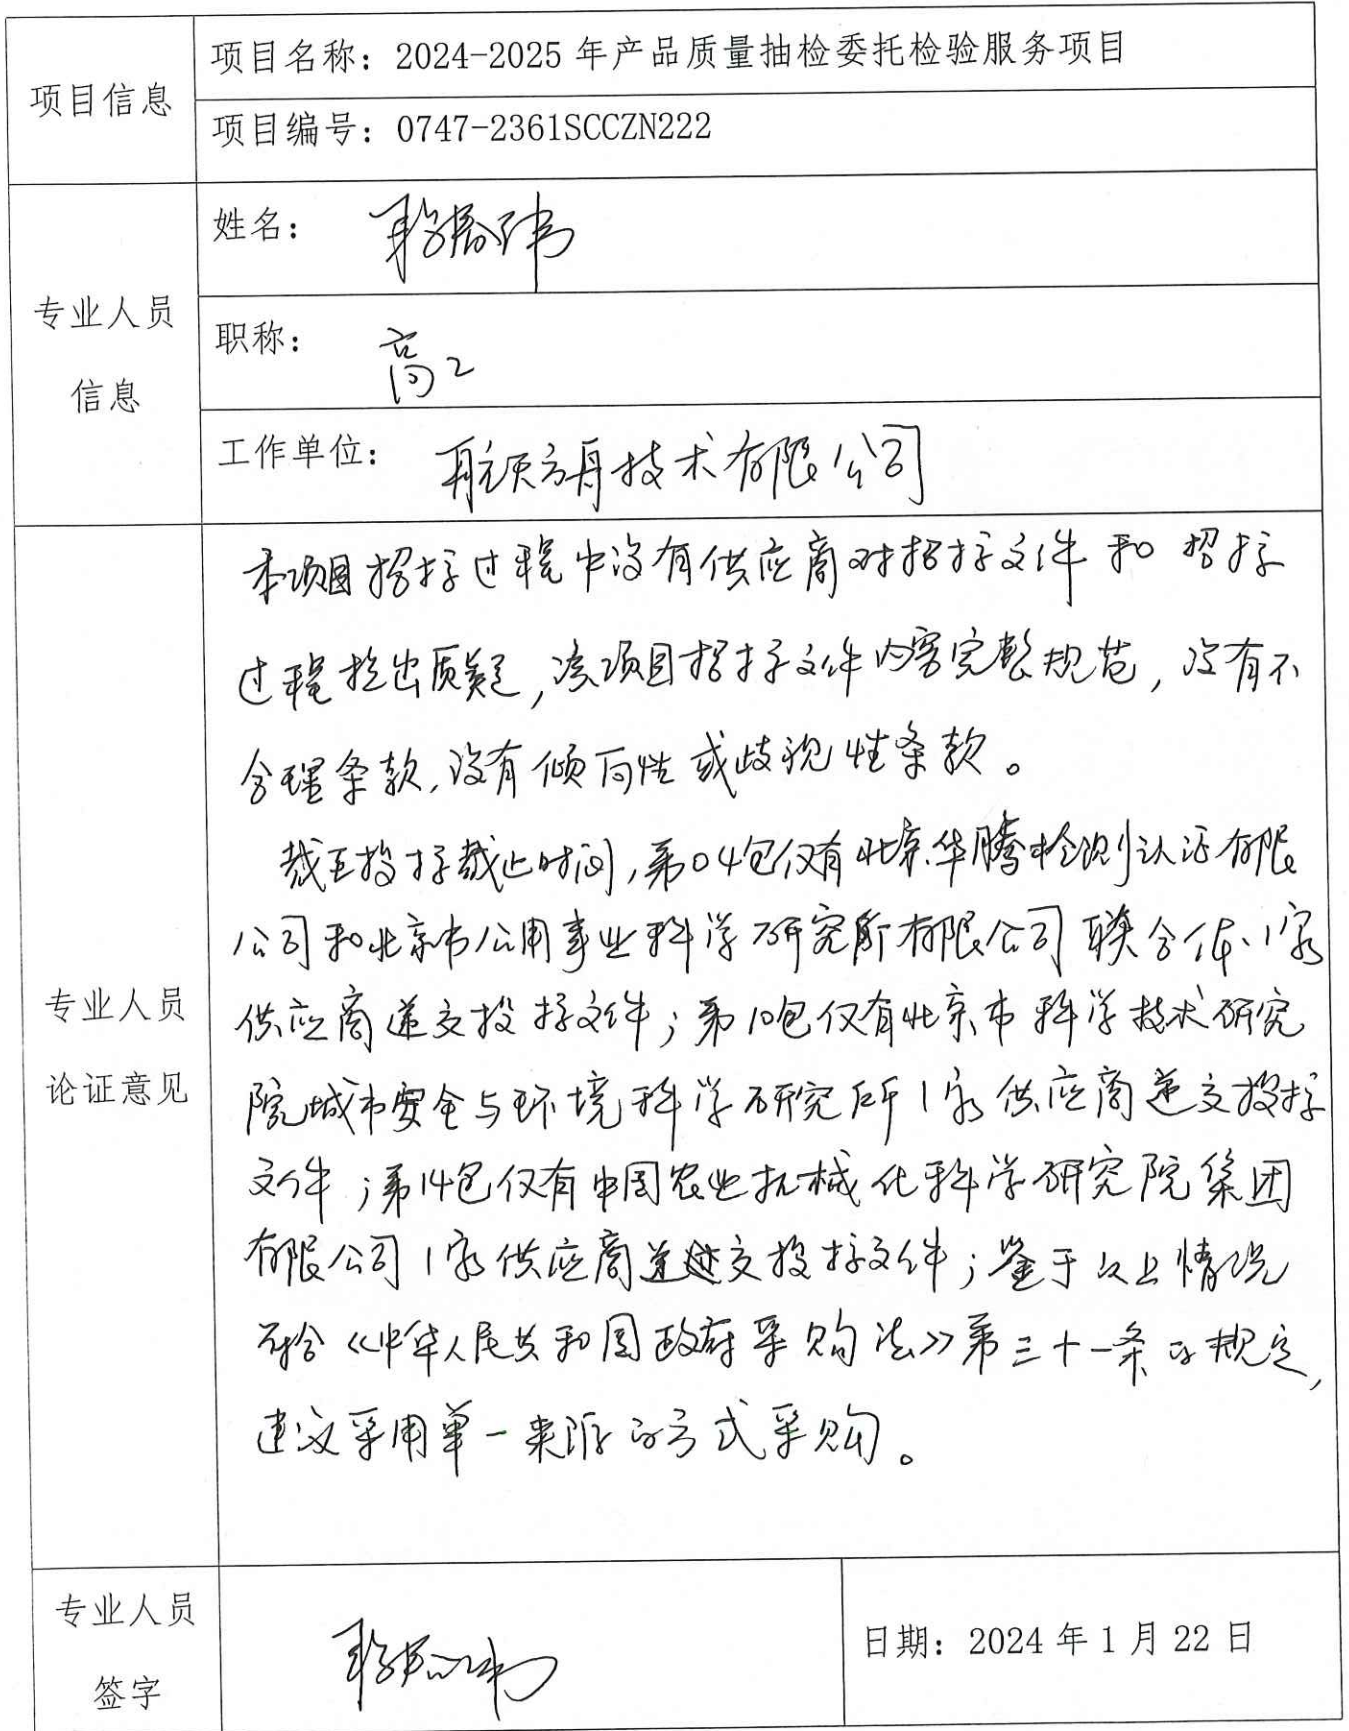 项目信息
项目名称：2024-2025年产品质量抽检委托检验服务项目
项目编号：0747-2361SCCZN222
专业人员
信息
姓名：
职称：高工
工作单位：航天方舟技术有限公司
专业人员
论证意见
本项目招标过程中没有供应商对招标文件和招标
过程提出质疑，该项目招标文件内容完整规范，没有不
合理条款，没有倾向性或歧视性条款。
截至投标截止时间，第04包仅有北京华腾检测认证有限
公司和北京市公用事业科学研究所有限公司联合体、1家
供应商递交投标文件；第10包仅有北京市科学技术研究
院城市安全与环境科学研究所1家供应商递交投标
文件；第14包仅有中国农业机械化科学研究院集团
有限公司1家供应商递交投标文件；鉴于以上情况
符合《中华人民共和国政府采购法》第三十一条的规定，
建议采用单一来源的方式采购。
专业人员
签字
日期：2024年1月22日